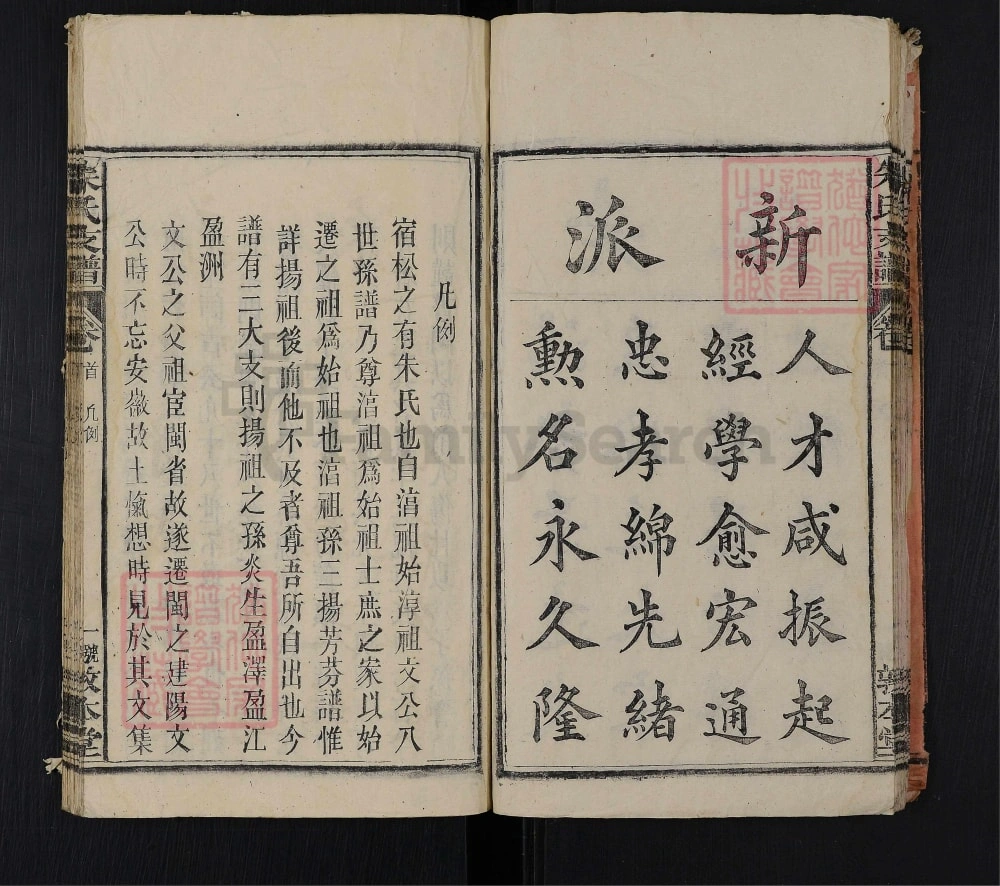 新派
人才咸振起
經學愈宏通
忠孝綿先緒
勳名永久隆
敦本堂
凡例
宿松之有朱氏也自湻祖始淳祖文公八
世孫譜乃尊湻祖爲始祖士庶之家以始
遷之祖爲始祖也湻祖孫三揚芳芬譜惟
詳揚祖後裔他不及者尊吾所自出也今
譜有三大支則揚祖之孫炎生盈澤盈江
盈洲
文公之父祖宦閩省故遂遷閩之建陽文
公時不忘安徽故土懷想時見於其文集
朱氏支譜
首
凡例
一號
敦本堂
FamilySearch